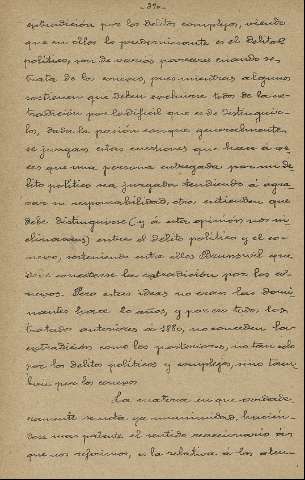 -390-
extradición por los delitos complejos, viendo
que en ellos lo predominante es el delito
político, son de varios pareceres cuando se
trata de los conexos, pues mientras algunos
sostienen que deben excluirse todos de la ex-
tradición por lo difícil que es de distinguir-
los, dada la pasión con que generalmente
se juzgan estas cuestiones que hace á ve-
ces que una persona entregada por un de-
lito político sea juzgada tendiendo á agra-
var su responsabilidad, otros entienden que
debe distinguirse (y á esta opinión nos in-
clinamos) entre el delito político y el co-
nexo, sosteniendo entre ellos que
debe concederse la extradición por los co-
nexos. Pero estas ideas no eran las domi-
nantes hace años, y por eso todos los
tratados anteriores á 1880, no conceden la
extradición como los posteriores, no tan solo
por los delitos políticos y complejos, sino tam-
bien por los conexos
La materia en que
ramente se nota ya unanimidad, hacién-
dose mas patente el sentido reaccionario á
que nos referimos, es la relativa á los aten-